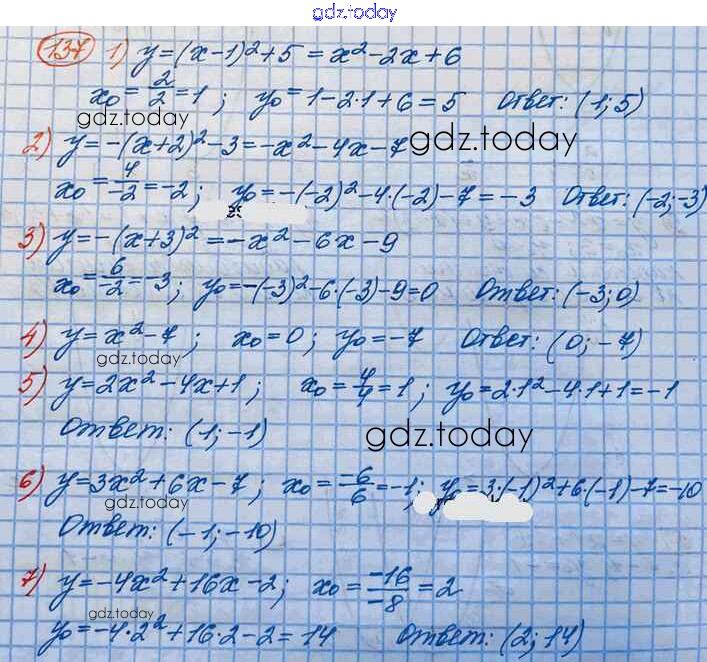 gdz.today
137 1) y=(x-1)²+5=x²-2x+6
x₀=2/2=1; y₀=1-2·1+6=5 Ответ: (1;5)
gdz.today
gdz.today
2) y=-(x+2)²-3=-x²-4x-7
x₀=4/-2=-2; y₀=-(-2)²-4·(-2)-7=-3 Ответ: (-2;-3)
3) y=-(x+3)²=-x²-6x-9
x₀=6/-2=-3; y₀=-(-3)²-6·(-3)-9=0 Ответ: (-3;0)
4) y=x²-7; x₀=0; y₀=-7 Ответ: (0;-7)
gdz.today
5) y=2x²-4x+1; x₀=4/4=1; y₀=2·1²-4·1+1=-1
Ответ: (1;-1)
gdz.today
6) y=3x²+6x-7; x₀=-6/6=-1; y₀=3·(-1)²+6·(-1)-7=-10
Ответ: (-1;-10)
7) y=-4x²+16x-2; x₀=-16/-8=2
gdz.today
y₀=-4·2²+16·2-2=14 Ответ: (2;14)